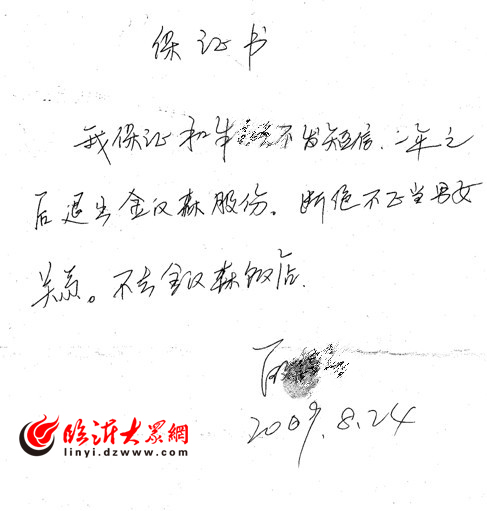 保证书
我保证和牛不发短信.一年之
后退出金汉森股份.断绝不正当男女
关系。不去金汉森饭店.
2009.8.24
临沂大众網
linyi.dzwww.com